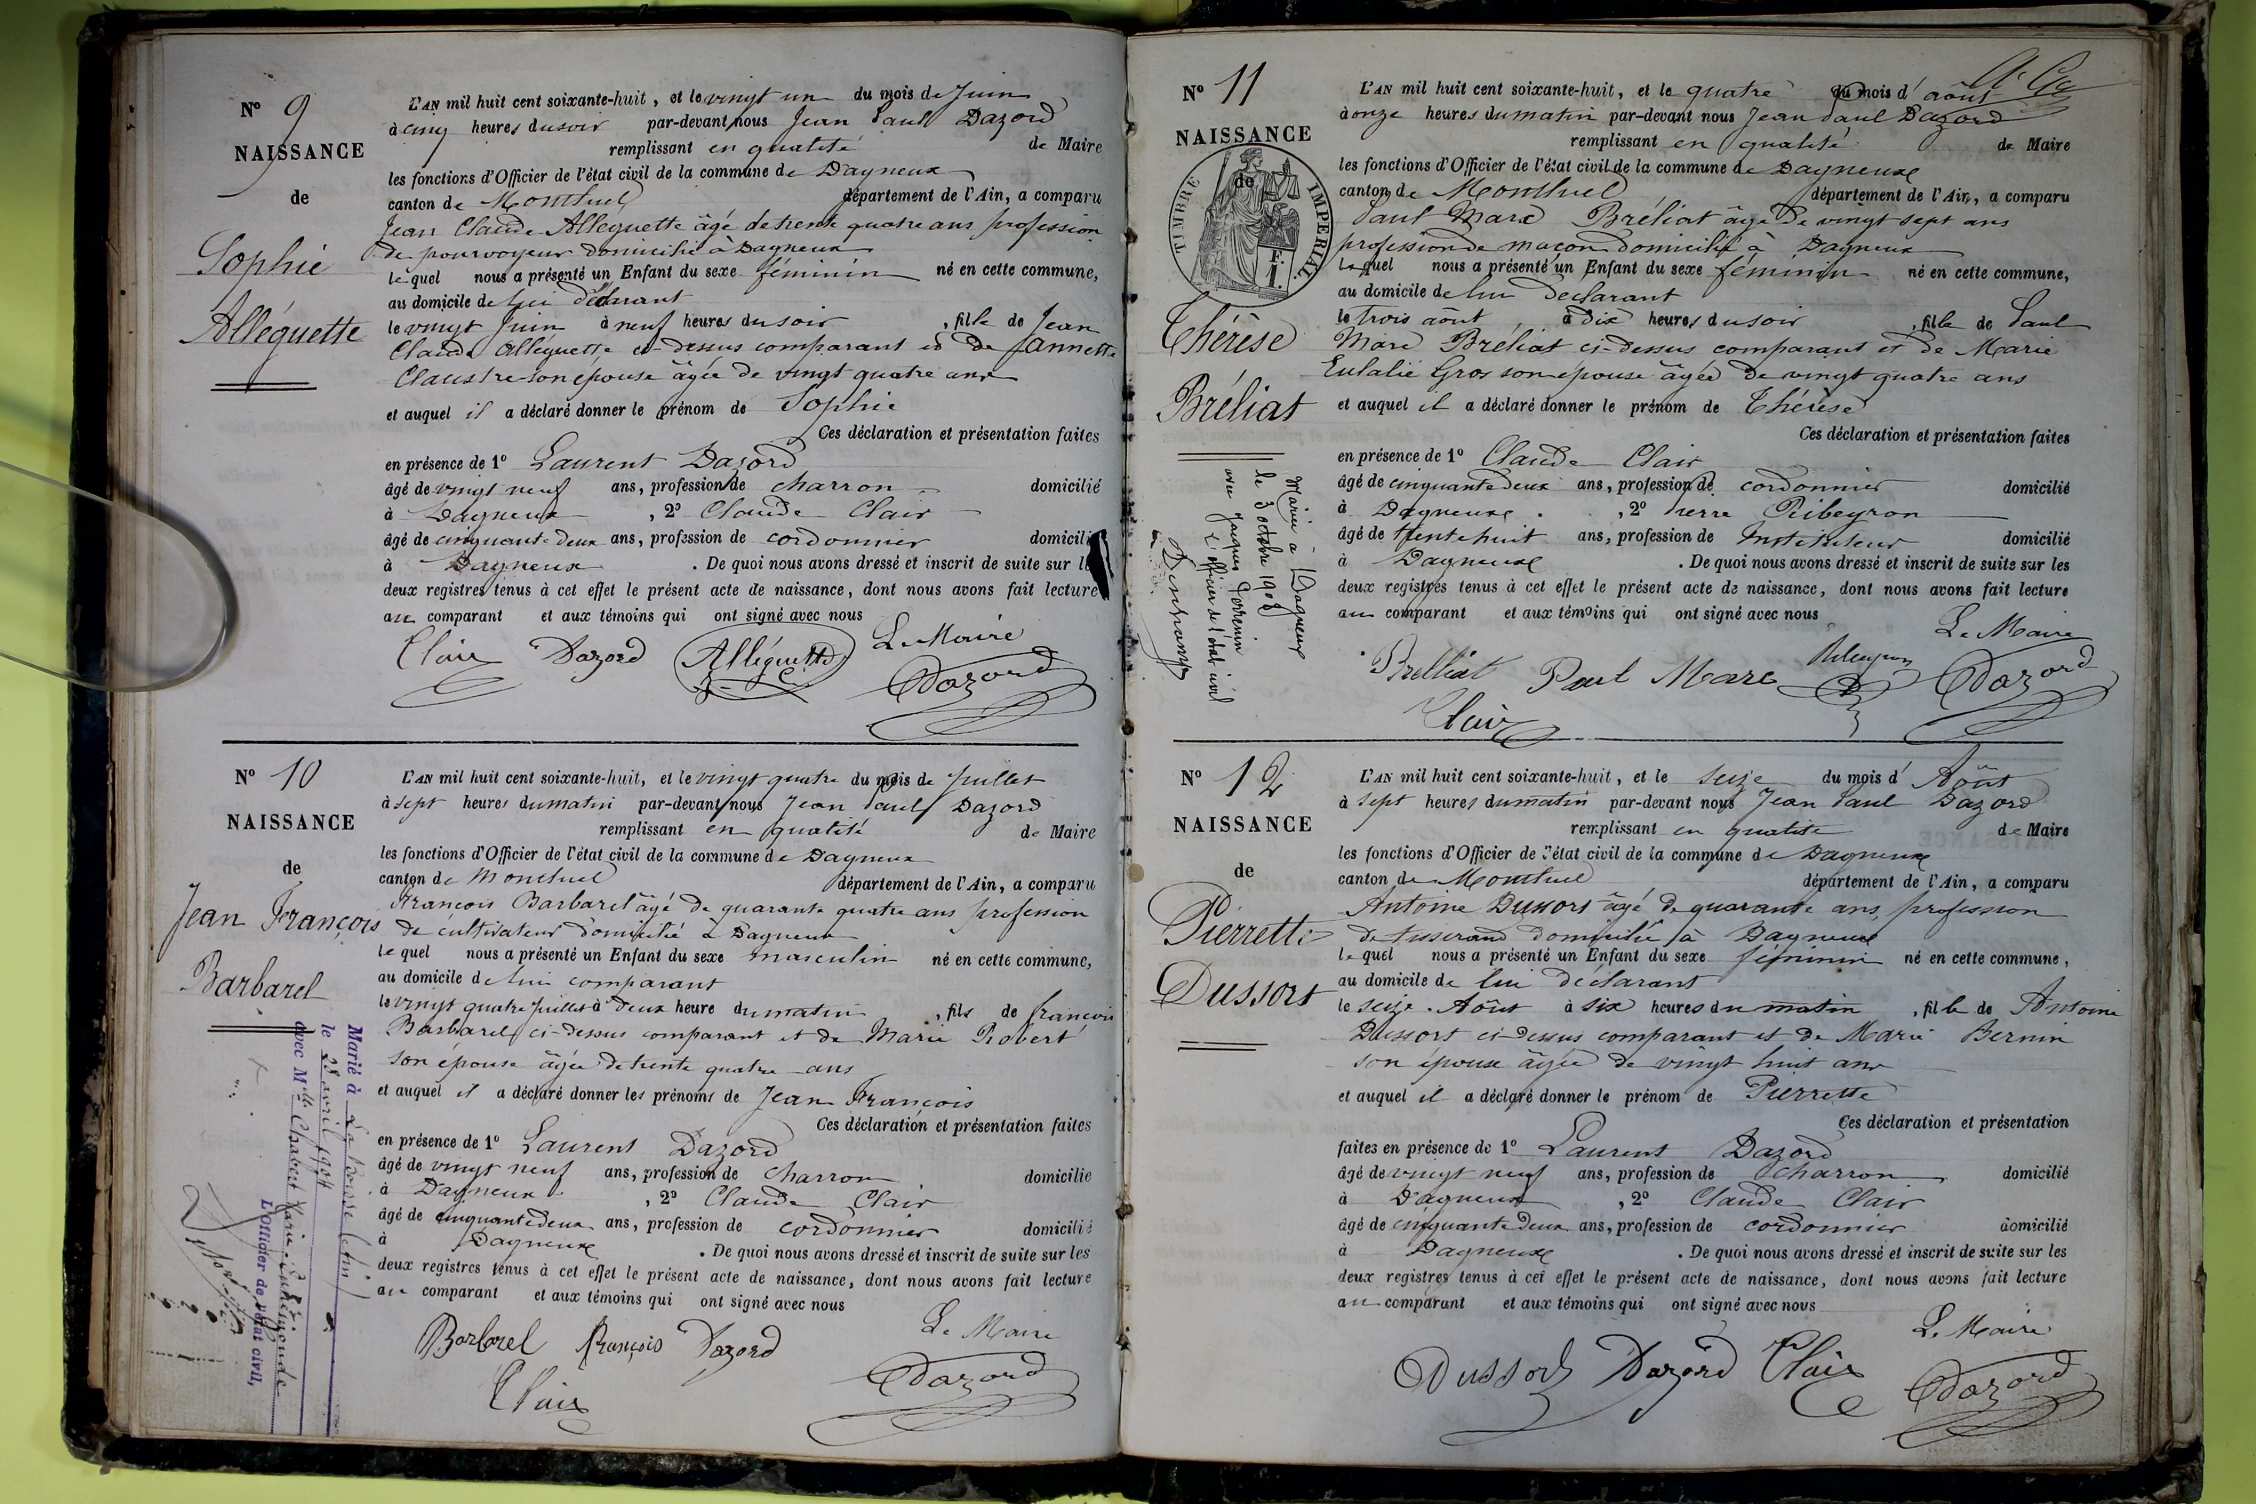 N° 9
NAISSANCE
de
Sophie
Alléguette
L'AN mil huit cent soixante-huit, et le vingt un du mois de Juin
à cinq heures du soir par-devant nous Jean Paul Dazord
remplissant en qualité de Maire
les fonctions d'Officier de l'état civil de la commune de Dagneux
canton de Montluel département de l'Ain, a comparu
Jean Claude Alléguette âgé de trente quatre ans profession
de pourvoyeur domicilié à Dagneux
lequel nous a présenté un Enfant du sexe féminin né en cette commune,
au domicile de lui déclarant
le vingt Juin à neuf heures du soir, fille de Jean
Claude Alléguette ci-dessus comparant et de Jannette
Claustre son épouse âgée de vingt quatre ans
et auquel il a déclaré donner le prénom de Sophie
Ces déclaration et présentation faites
en présence de 1° Laurent Dazord
âgé de vingt neuf ans, profession de charron domicilié
à Dagneux, 2° Claude Clair
âgé de cinquante deux ans, profession de cordonnier domicilié
à Dagneux. De quoi nous avons dressé et inscrit de suite sur les
deux registres tenus à cet effet le présent acte de naissance, dont nous avons fait lecture
au comparant et aux témoins qui ont signé avec nous
Le Maire
Clair Dazord Alléguette Dazord
N° 10
NAISSANCE
de
Jean François
Barbarel
Marié à La Boisse (Ain)
le 23 avril 1904
avec Melle Chabert Marie
L'Officier de l'état civil,
L'AN mil huit cent soixante-huit, et le vingt quatre du mois de Juillet
à sept heures du matin par-devant nous Jean Paul Dazord
remplissant en qualité de Maire
les fonctions d'Officier de l'état civil de la commune de Dagneux
canton de Montluel département de l'Ain, a comparu
François Barbarel âgé de quarante quatre ans profession
de cultivateur domicilié à Dagneux
lequel nous a présenté un Enfant du sexe masculin né en cette commune,
au domicile de lui comparant
le vingt quatre Juillet à deux heure du matin, fils de françois
Barbarel ci-dessus comparant et de Marie Robert
son épouse âgée de trente quatre ans
et auquel il a déclaré donner les prénoms de Jean François
Ces déclaration et présentation faites
en présence de 1° Laurent Dazord
âgé de vingt neuf ans, profession de charron domicilié
à Dagneux, 2° Claude Clair
âgé de cinquante deux ans, profession de cordonnier domicilié
à Dagneux. De quoi nous avons dressé et inscrit de suite sur les
deux registres tenus à cet effet le présent acte de naissance, dont nous avons fait lecture
au comparant et aux témoins qui ont signé avec nous
Le Maire
Barbarel François Dazord
Clair Dazord
N° 11
NAISSANCE
de
TIMBRE IMPERIAL
F. 1.
Thérèse
Bréliat
Mariée à Dagneux
le 3 octobre 1908
avec Jacques
L'officier de l'état civil
L'AN mil huit cent soixante-huit, et le quatre du mois d'août
à onze heures du matin par-devant nous Jean Paul Dazord
remplissant en qualité de Maire
les fonctions d'Officier de l'état civil de la commune de Dagneux
canton de Montluel département de l'Ain, a comparu
Paul Marc Bréliat âgé de vingt sept ans
profession de maçon domicilié à Dagneux
lequel nous a présenté un Enfant du sexe féminin né en cette commune,
au domicile de lui déclarant
le trois août à dix heures du soir, fille de Paul
Marc Bréliat ci-dessus comparant et de Marie
Eulalie Gros son épouse âgée de vingt quatre ans
et auquel il a déclaré donner le prénom de Thérèse
Ces déclaration et présentation faites
en présence de 1° Claude Clair
âgé de cinquante deux ans, profession de cordonnier domicilié
à Dagneux, 2° Pierre Ribeyron
âgé de trente huit ans, profession de Instituteur domicilié
à Dagneux. De quoi nous avons dressé et inscrit de suite sur les
deux registres tenus à cet effet le présent acte de naissance, dont nous avons fait lecture
au comparant et aux témoins qui ont signé avec nous
Le Maire
Brelliat Paul Marc Ribeyron Dazord
Clair
N° 12
NAISSANCE
de
Pierrette
Dussort
L'AN mil huit cent soixante-huit, et le seize du mois d'Août
à sept heures du matin par-devant nous Jean Paul Dazord
remplissant en qualité de Maire
les fonctions d'Officier de l'état civil de la commune de Dagneux
canton de Montluel département de l'Ain, a comparu
Antoine Dussort âgé de quarante ans, profession
de tisserand domicilié à Dagneux
lequel nous a présenté un Enfant du sexe féminin né en cette commune,
au domicile de lui déclarant
le seize Août à six heures du matin, fille de Antoine
Dussort ci-dessus comparant et de Marie Bernin
son épouse âgée de vingt huit ans
et auquel il a déclaré donner le prénom de Pierrette
Ces déclaration et présentation
faites en présence de 1° Laurent Dazord
âgé de vingt neuf ans, profession de charron domicilié
à Dagneux, 2° Claude Clair
âgé de cinquante deux ans, profession de cordonnier domicilié
à Dagneux. De quoi nous avons dressé et inscrit de suite sur les
deux registres tenus à cet effet le présent acte de naissance, dont nous avons fait lecture
au comparant et aux témoins qui ont signé avec nous
Le Maire
Dussort Dazord Clair Dazord